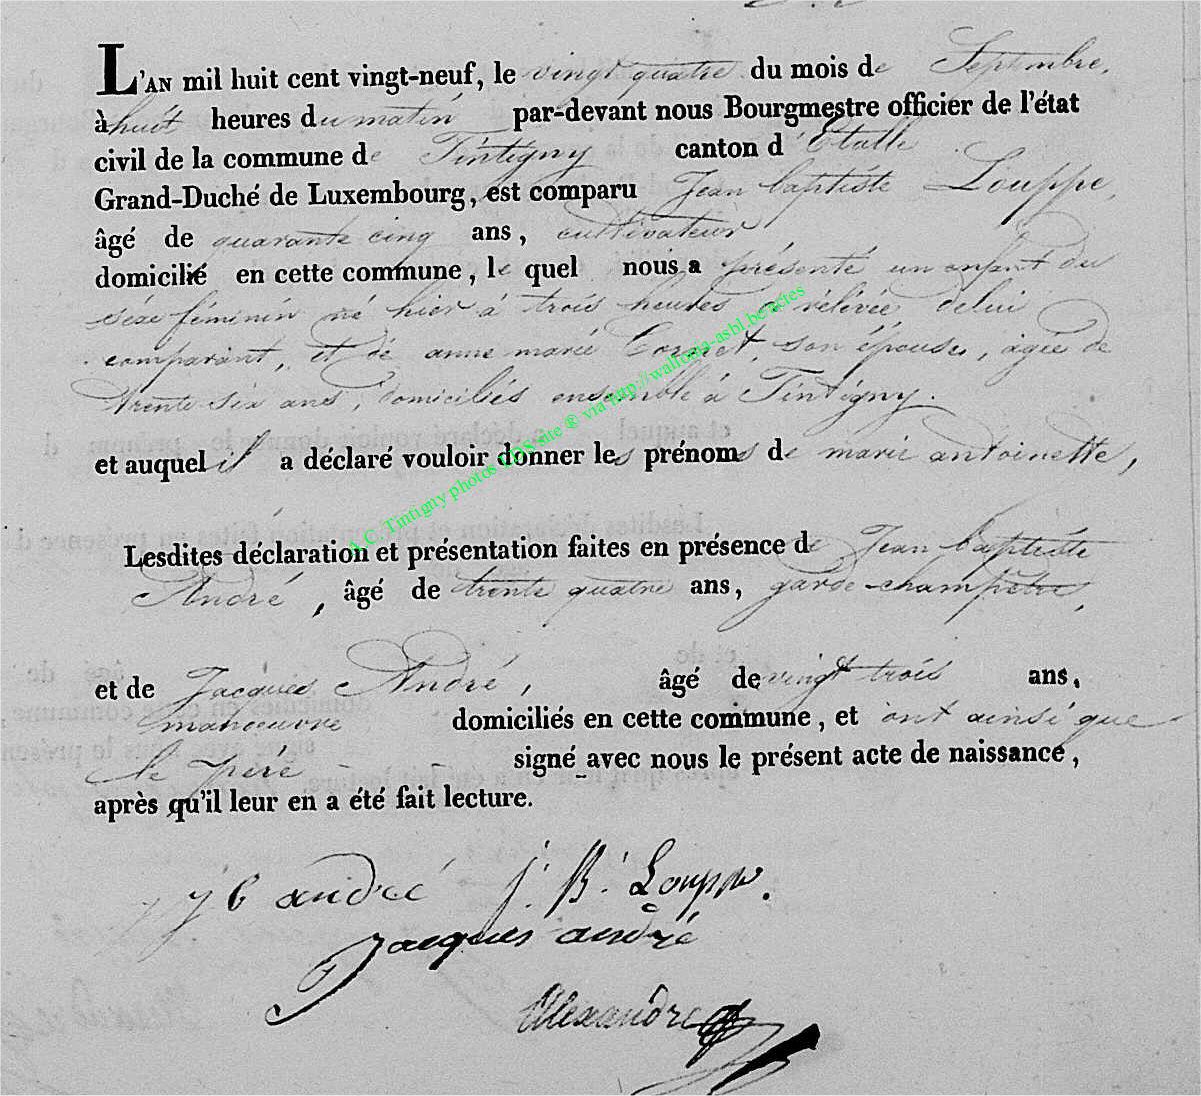 L'AN mil huit cent vingt-neuf, le vingt quatre du mois de Septembre,
à huit heures du matin par-devant nous Bourgmestre officier de l'état
civil de la commune de Tintigny canton d'Etalle
Grand-Duché de Luxembourg, est comparu Jean baptiste Louppe,
âgé de quarante cinq ans, cultivateur
domicilié en cette commune, le quel nous a présenté un enfant du
sexe féminin né hier à trois heures de rélévée, de lui
comparant, et de anne marie Cornet, son épouse, agée de
trente six ans, domiciliés ensemble à Tintigny.
et auquel il a déclaré vouloir donner les prénoms de marie antoinette,
Lesdites déclaration et présentation faites en présence de Jean baptiste
André, âgé de trente quatre ans, garde-champêtre,
et de Jacques André, âgé de vingt trois ans,
manoeuvre domiciliés en cette commune, et ont ainsi que
le péré - - signé avec nous le présent acte de naissance,
après qu'il leur en a été fait lecture.
j b andré j. B. Louppe.
jacques andré
Alexandre
A.C.Tintigny photos LDS site ® via http://wallonia-asbl.be/actes